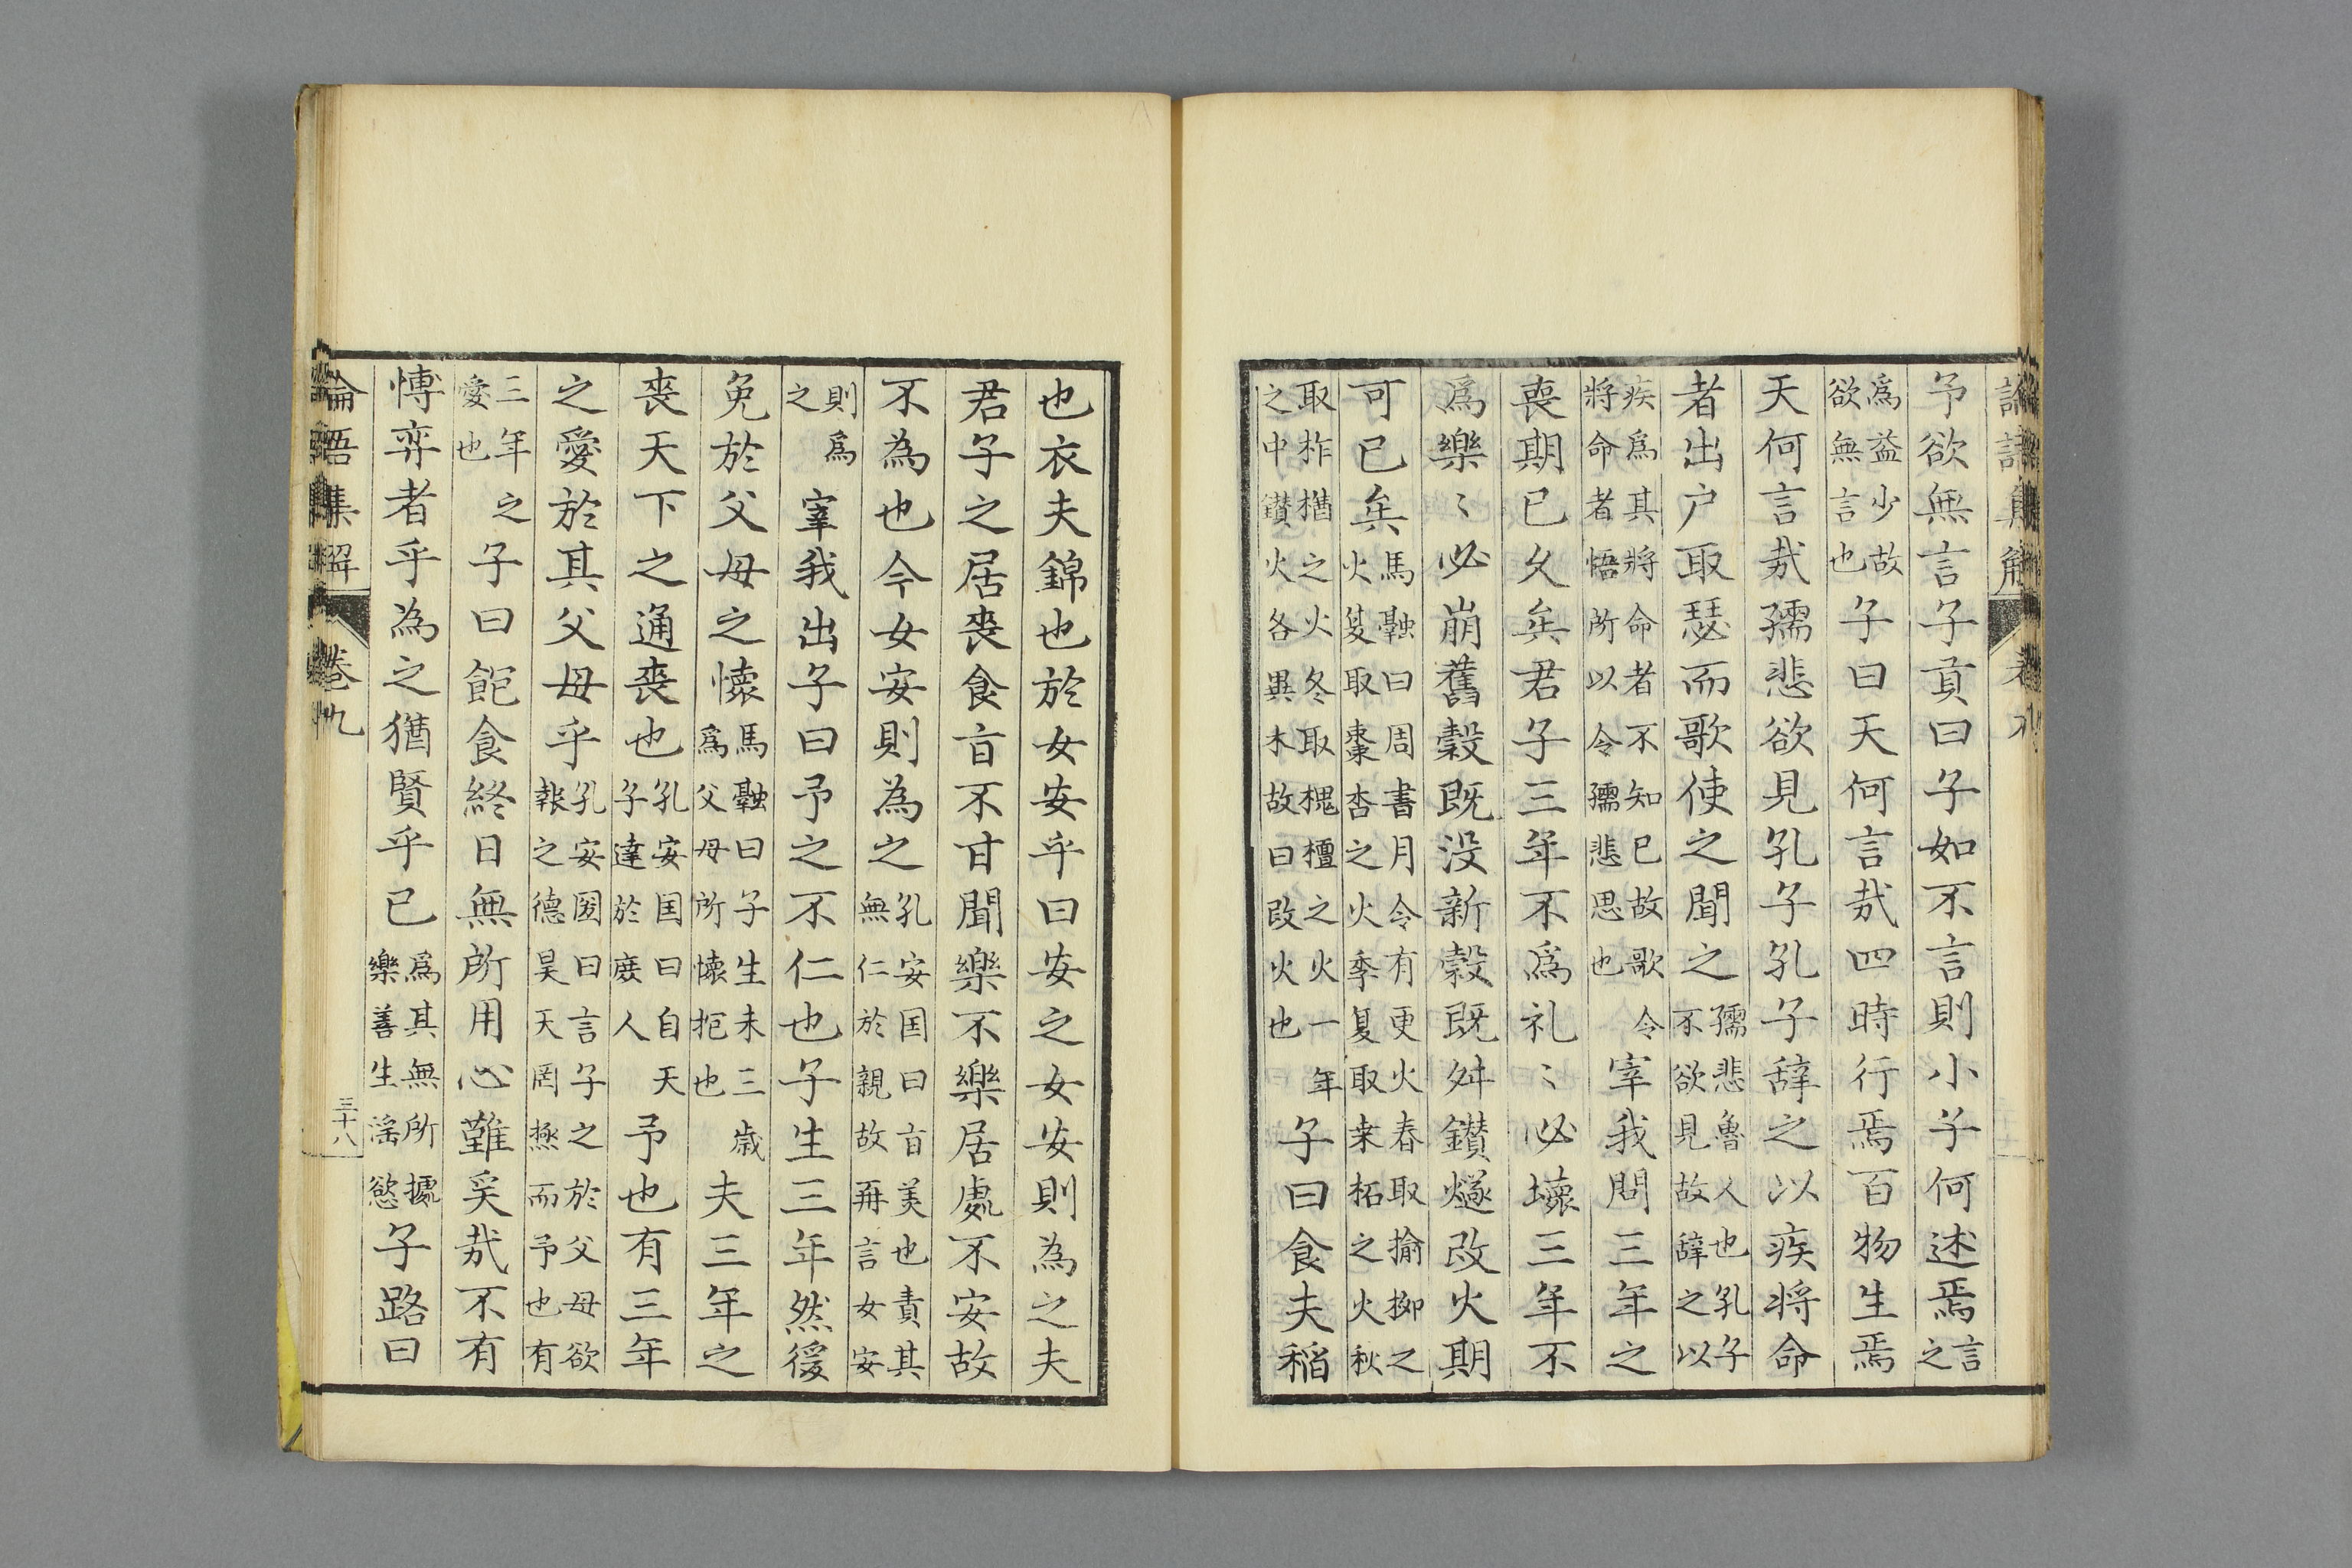 予欲無言子貢曰子如不言則小子何述焉言之
爲益少故欲無言也子曰天何言哉四時行焉百物生焉
天何言哉孺悲欲見孔子孔子辞之以疾将命
者出户取瑟而歌使之聞之孺悲魯人也孔子不欲見故辞之以
疾爲其將命者不知已故歌令將命者悟所以令孺悲思也宰我問三年之
喪期已久矣君子三年不爲礼〻必壊三年不
爲樂〻必崩舊穀既没新穀既舛鑚燧改火期
可已矣馬融曰周書月令有更火春取揄栁之火夏取棗杏之火季夏取来柘之火秋
取柞楢之火冬取槐檀之火一年之中鑚火各異木故曰改火也子曰食夫稲
也衣夫錦也於女安乎曰安之女安則為之夫
君子之居喪食旨不甘聞樂不樂居處不安故
不為也今女安則為之孔安国曰旨美也責其無仁於親故再言女安
則爲之宰我出子曰予之不仁也子生三年然後
免於父母之懐馬融曰子生未三歳爲父母所懐抱也夫三年之
喪天下之通喪也孔安国曰自天子達於庶人予也有三年
之愛於其父母乎孔安国曰言子之於父母欲報之德昊天罔極而予也有
三年之愛也子曰飽食終日無所用心難矣哉不有
博弈者乎為之猶賢乎已爲其無所據樂善生滛慾子路曰
論語集解 巻九 三十八